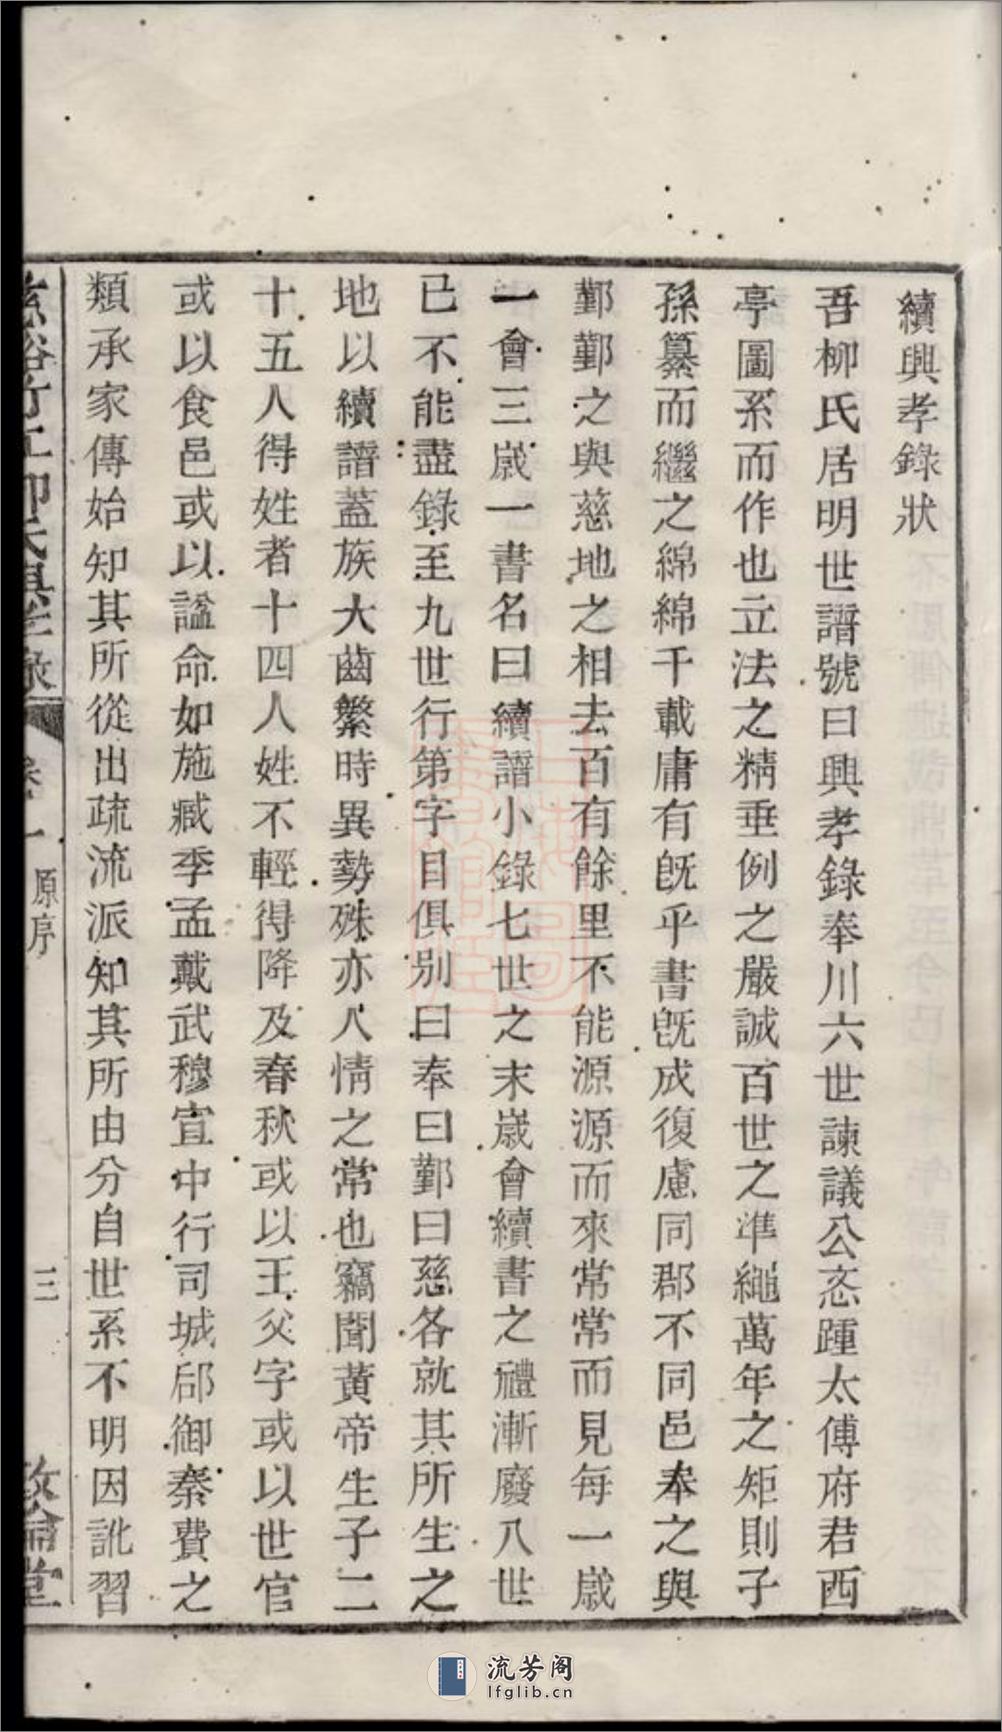 續興孝錄狀
吾柳氏居明世譜號曰興孝錄奉川六世諫議公忞踵太傅府君西
亭圖系而作也立法之精垂例之嚴誠百世之準繩萬年之矩則子
孫纂而繼之綿綿千載庸有旣乎書旣成復慮同郡不同邑奉之與
鄞鄞之與慈地之相去百有餘里不能源源而來常常而見每一歲
一會三歲一書名曰續譜小錄七世之末歲會續書之禮漸廢八世
已不能盡錄至九世行第字目俱別曰奉曰鄞曰慈各就其所生之
地以續譜蓋族大齒繁時異勢殊亦人情之常也竊聞黃帝生子二
十五人得姓者十四人姓不輕得降及春秋或以王父字或以世官
或以食邑或以謚命如施臧季孟戴武穆宣中行司城郈御秦費之
類承家傳始知其所從出疏流派知其所由分自世系不明因訛習
慈谿竹江柳氏興孝錄 卷一 原序 三 敦倫堂
流芳阁
lfglib.cn